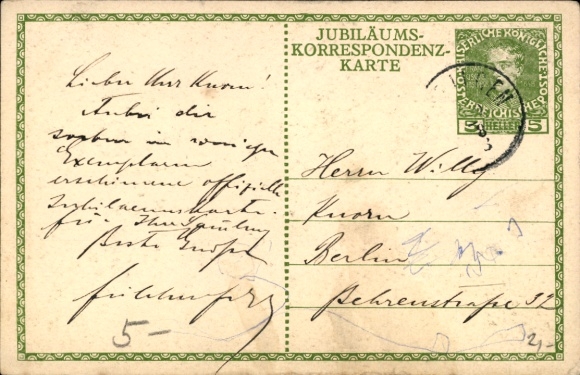 JUBILÄUMS-
KORRESPONDENZ-
KARTE
KAISERLICHE KÖNIGLICHE
ÖSTERREICHISCHE POST
5 HELLER 5
Lieber Herr Knorn!
Anbei die
soeben in wenigen
Exemplaren
erschienene offizielle
Jubilaeumskarte
für Ihre Samlung
Beste Grüße
5-
Herrn Willy
Knorn
Berlin
Behrenstraße 32
2,-